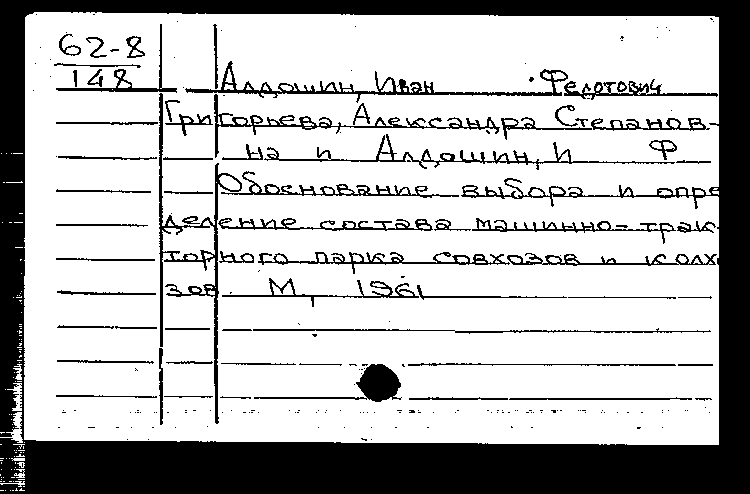 62-8
148
Алдошин, Иван Федотович
Григорьева, Александра Степанов-
на и Алдошин, И Ф
Обоснование выбора и опре
деление состава машинно-трак
торного парка совхозов и колх
зов. М., 1961